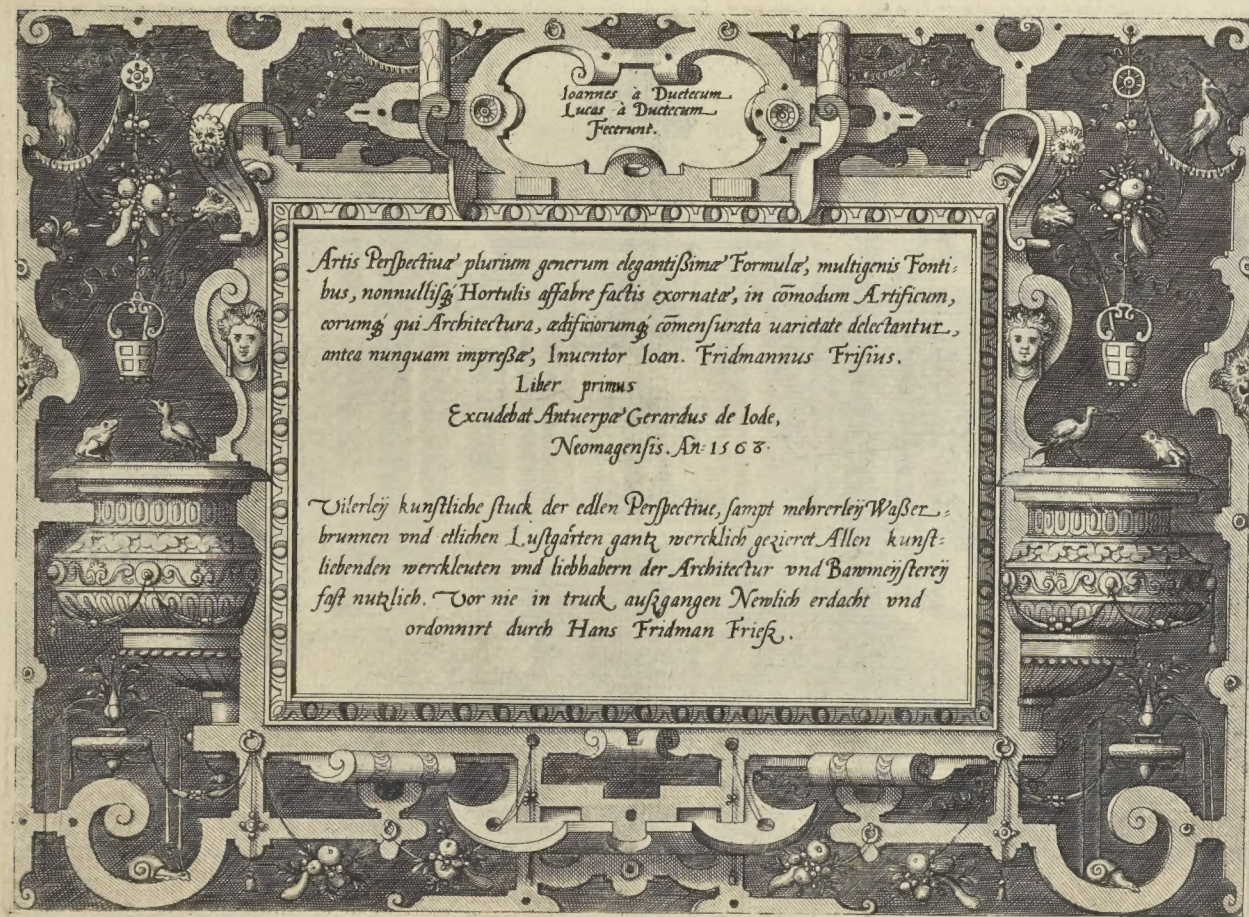 Ioannes à Duetecum
Lucas à Duetecum
Fecerunt.
Artis Perspectiuæ plurium generum elegantißimæ Formulæ, multigenis Fonti:
bus, nonnullisq́; Hortulis affabre factis exornatæ, in cōmodum Artificum,
eorumq́; qui Architectura, ædificiorumq́; cōmensurata uarietate delectantur,
antea nunquam impreßæ, Inuentor Ioan. Fridmannus Frisius.
Liber primus
Excudebat Antuerpæ Gerardus de Iode,
Neomagensis. An: 1568.
Vilerleÿ kunstliche stuck der edlen Perspectiue, sampt mehrerleÿ Waßer:
brunnen vnd etlichen Lustgårten gantz wercklich gezieret Allen kunst:
liebenden werckleuten vnd liebhabern der Architectur vnd Bawmeÿstereÿ
fast nutzlich. Vor nie in truck außgangen Newlich erdacht vnd
ordonnirt durch Hans Fridman Frieß.